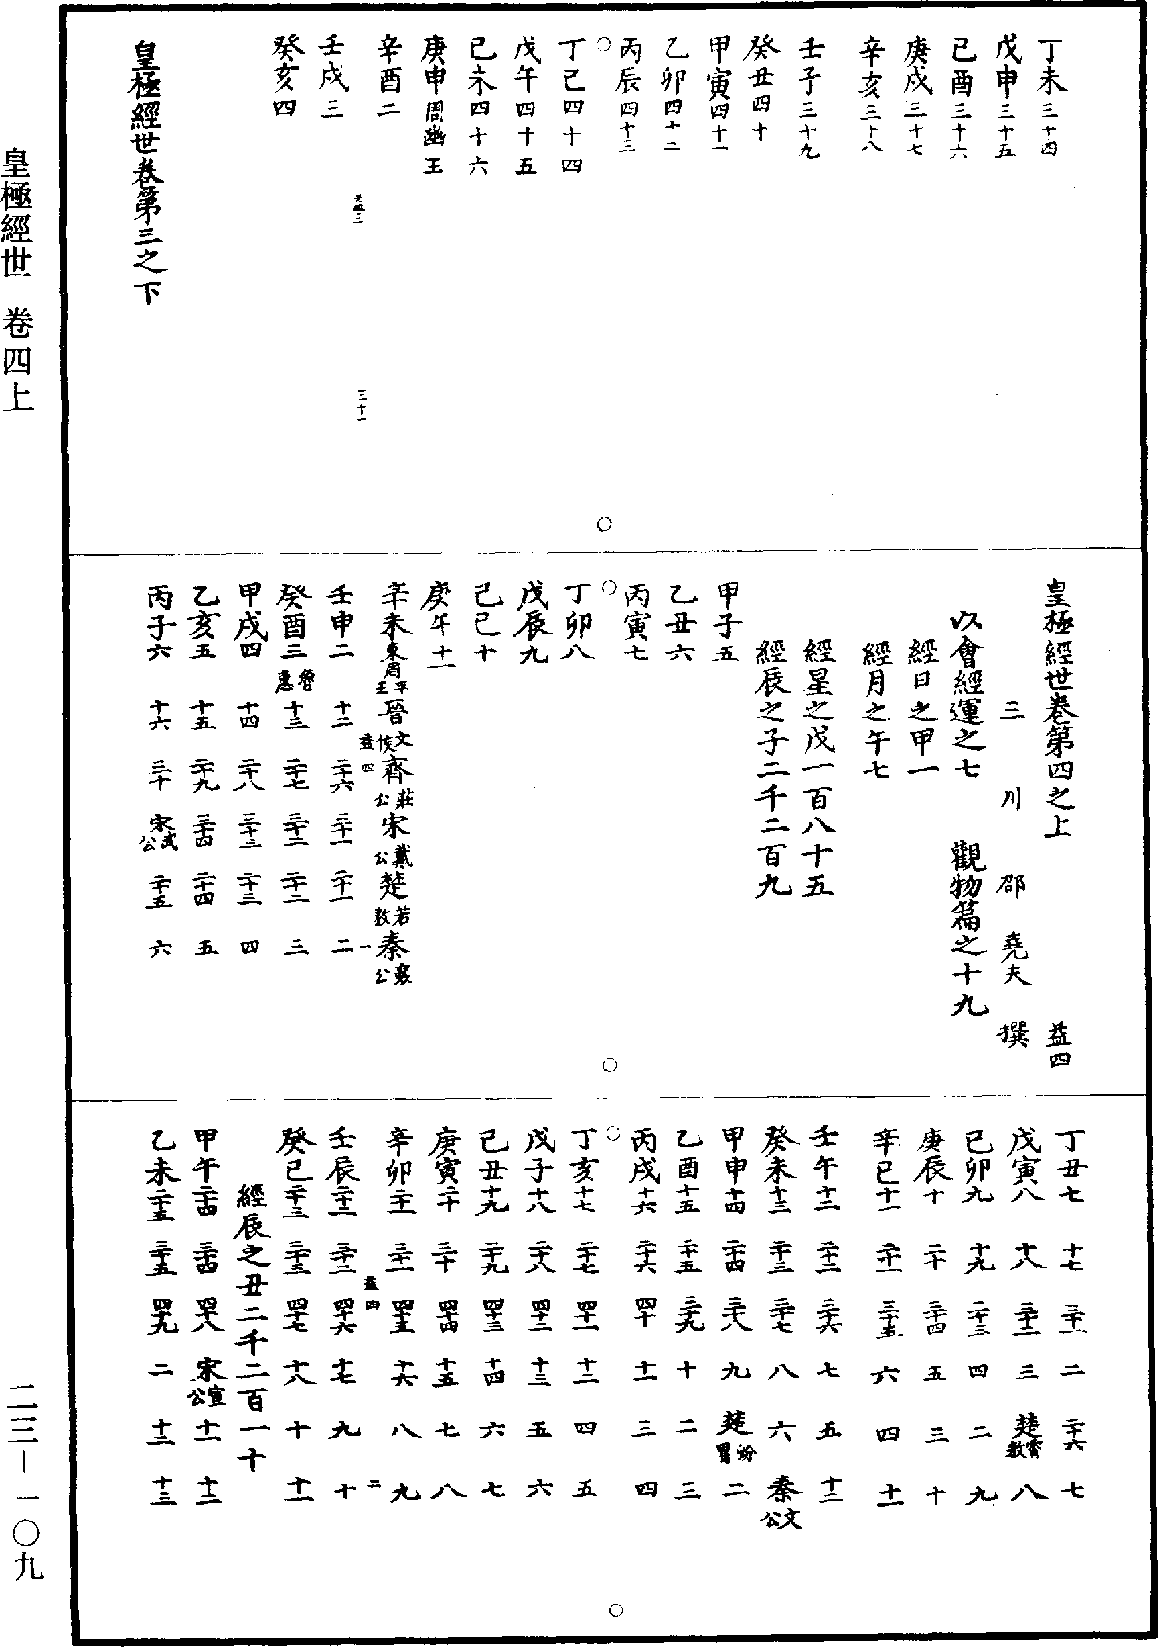 皇極經世　卷四上
二三—一〇九
丁未三十四
戊申三十五
己酉三十六
庚戌三十七
辛亥三十八
壬子三十九
癸丑四十
甲寅四十一
乙卯四十二
丙辰四十三
○
丁巳四十四
戊午四十五
己未四十六
庚申周幽王
辛酉二
壬戌三
癸亥四
三十一
皇極經世卷第三之下
○
皇極經世卷第四之上　益四
三川　邵　堯夫　撰
以會經運之七　觀物篇之十九
經日之甲一
經月之午七
經星之戊一百八十五
經辰之子二千二百九
甲子五
乙丑六
丙寅七
○
丁卯八
戊辰九
己巳十
庚午十一
辛未東周平王　晉文侯　齊莊公　宋戴公　楚若敖　秦襄公
益四　一
壬申二　十二　二十六　三十一　二十一　二
癸酉三　魯惠　十三　二十七　三十二　二十二　三
甲戌四　十四　二十八　三十三　二十三　四
乙亥五　十五　二十九　三十四　二十四　五
丙子六　十六　三十　宋武公　二十五　六
○
丁丑七　十七　三十一　二　二十六　七
戊寅八　十八　三十二　三　楚霄敖　八
己卯九　十九　三十三　四　二　九
庚辰十　二十　三十四　五　三　十
辛巳十一　二十一　三十五　六　四　十一
壬午十二　二十二　三十六　七　五　十二
癸未十三　二十三　三十七　八　六　秦文公
甲申十四　二十四　三十八　九　楚蚡冒　二
乙酉十五　二十五　三十九　十　二　三
丙戌十六　二十六　四十　十一　三　四
○
丁亥十七　二十七　四十一　十二　四　五
戊子十八　二十八　四十二　十三　五　六
己丑十九　二十九　四十三　十四　六　七
庚寅二十　三十　四十四　十五　七　八
辛卯二十一　三十一　四十五　十六　八　九
益四　二
壬辰二十二　三十二　四十六　十七　九　十
癸巳二十三　三十三　四十七　十八　十　十一
經辰之丑二千二百一十
甲午二十四　三十四　四十八　宋宣公　十一　十二
乙未二十五　三十五　四十九　二　十二　十三
○